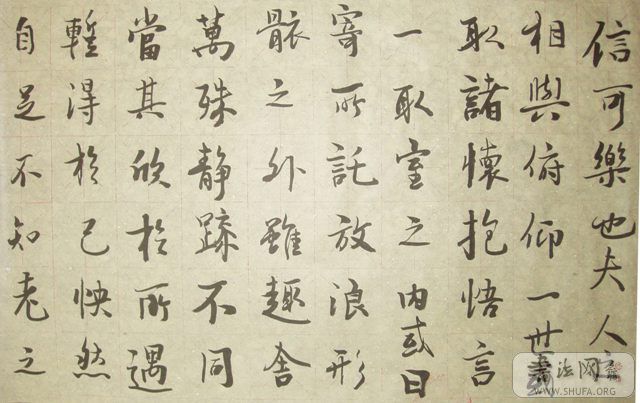 信可樂也夫人之
相與俯仰一世或
取諸懷抱悟言
一取室之内或因
寄所託放浪形
骸之外雖趣舍
萬殊静躁不同
當其欣於所遇
蹔得於己怏然
自足不知老之
書法网
WWW.SHUFA.ORG